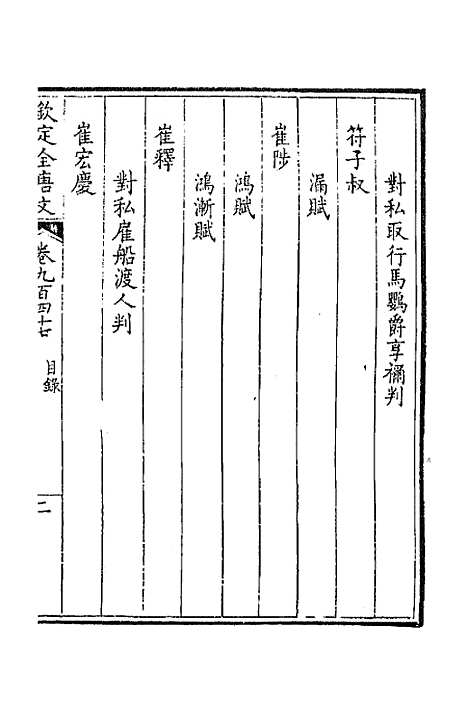 對私取行馬鸚爵享禰判
符子叔
漏賦
崔陟
鴻賦
鴻漸賦
崔釋
對私雇船渡人判
崔宏慶
欽定全唐文 卷九百四十七 目錄 二